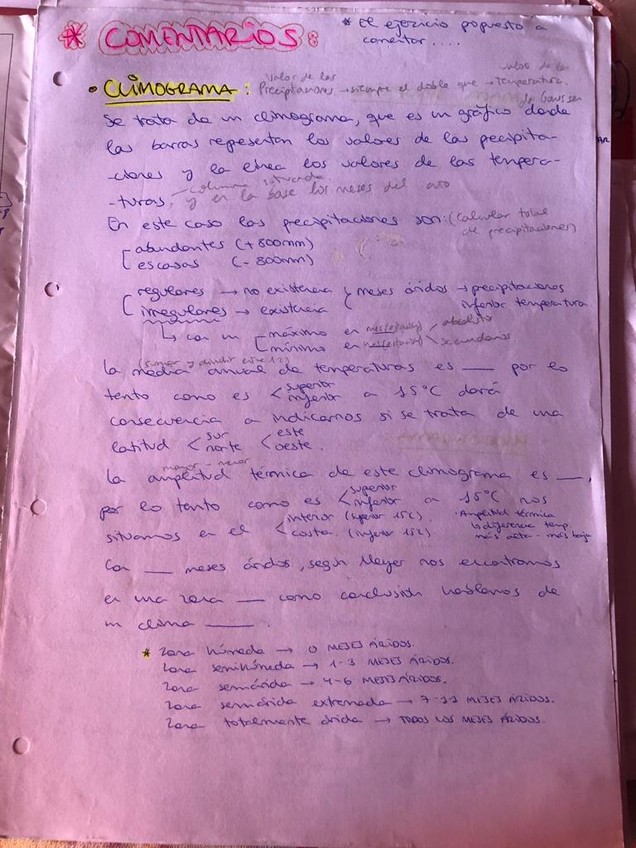 * COMENTARIOS:
* El ejercicio propuesto a
comentar ....
• CLIMOGRAMA: Valor de las Precipitaciones → siempre el doble que → valor de las temperatura.
Se trata de un climograma, que es un gráfico donde
las barras representan los valores de las precipita-
-ciones y la línea los valores de las tempera-
-turas, y en la base los meses del año
En este caso las precipitaciones son: (calcular total
de precipitaciones)
[abundantes (+800mm)
[escasas (-800mm)
[regulares → no existencia } meses áridos → precipitaciones
[irregulares → existencia inferior temperatura
↳ con un [máximo en mes(estación) absoluto
[mínimo en mes(estación) secundarios
(sumar y dividir entre 12)
La media anual de temperaturas es ___ por lo
tanto como es < superior inferior a 15°C dará
consecuencia a indicarnos si se trata de una
latitud < sur norte < este oeste.
mayor - menor
La amplitud térmica de este climograma es ___,
por lo tanto como es < superior inferior a 15°C nos
situamos en el < interior (superior 15C). costa. (inferior 15C)
· Amplitud térmica
↳ diferencia temp.
más alta - más baja
Con ___ meses áridos, según Meyer nos encontramos
en una zona ___ como conclusión hablamos de
un clima ___.
* Zona húmeda → 0 MESES ÁRIDOS.
Zona semihúmeda → 1-3 MESES ÁRIDOS.
Zona semiárida → 4-6 MESES ÁRIDOS.
Zona semiárida extremada → 7-11 MESES ÁRIDOS.
Zona totalmente árida → TODOS LOS MESES ÁRIDOS.